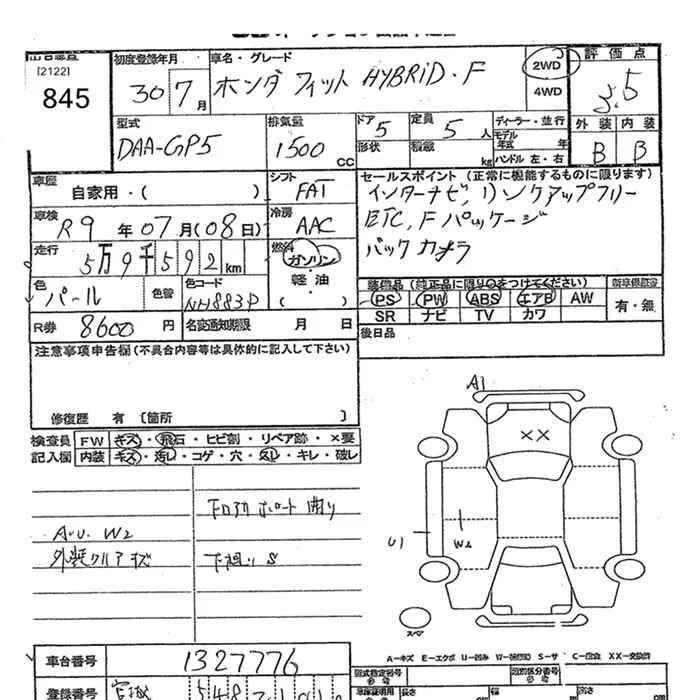 出品番号
[2122]
845
初度登録年月
30年 7月
車名・グレード
ホンダ フィット HYBRID・F
2WD
4WD
評価点
3.5
型式
DAA-GP5
排気量
1500 CC
ドア 5
形状
定員 5 人
積載 kg
ディーラー・並行
モデル年式 年
ハンドル 左・右
外装 内装
B B
車歴
自家用・( )
シフト
FAT
セールスポイント(正常に機能するものに限ります)
インターナビ,リンクアップフリー
ETC, Fパッケージ
バックカメラ
車検
R9年07月(08日)
冷房
AAC
走行
5万9千592km
燃料
ガソリン
軽油
( )
色
パール
色替
色コード
NH883P
装備品(純正品に限り○をつけてください)
PS PW ABS エアB AW
SR ナビ TV カワ
新車保証書
有・無
R券 8600円
名変通知期限 月 日
後日品
注意事項申告欄(不具合内容等は具体的に記入して下さい)
修復歴 有 [箇所 ]
検査員 FW キズ・飛石・ヒビ割・リペア跡・×要
記入欄 内装 キズ・汚レ・コゲ・穴・スレ・キレ・破レ
A.U. W2
外装クルアキズ
下回リ S
A1
XX
U1
W2
スペア
A-キズ E-エクボ U-凹み W-補修跡 S-サ C-腐食 XX-交換済
車台番号 1327776
登録番号 宮城
型式指定番号
類別区分番号
長さ
幅
高さ